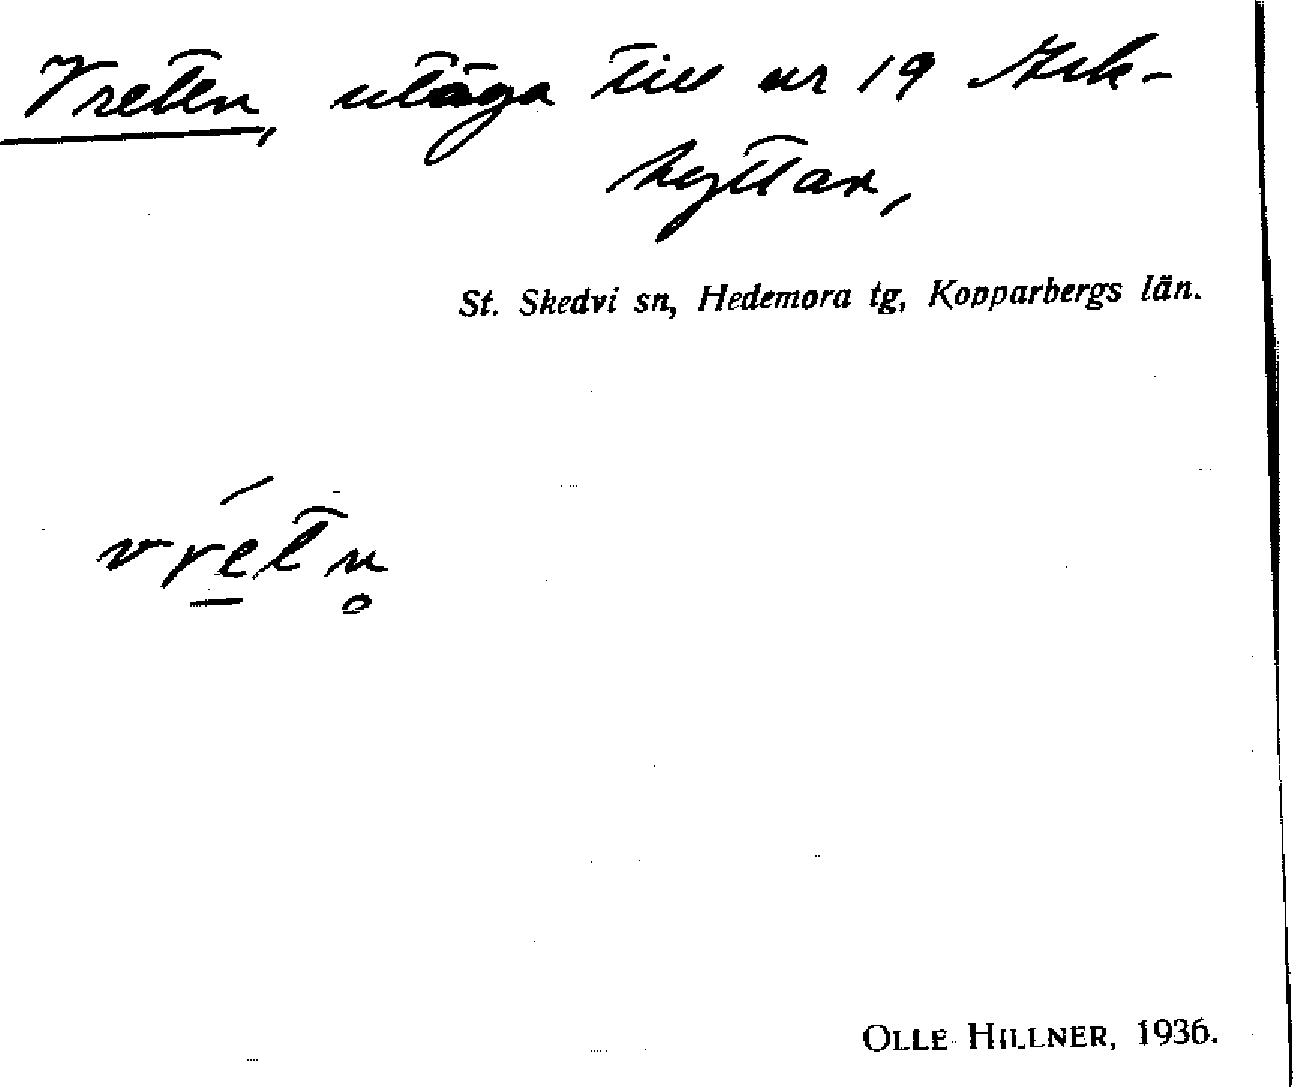 Vreten, utäga till nr 19 Ark-
hyttan,
St. Skedvi sn, Hedemora tg, Kopparbergs län.
vré̱tn̥
OLLE HILLNER, 1936.